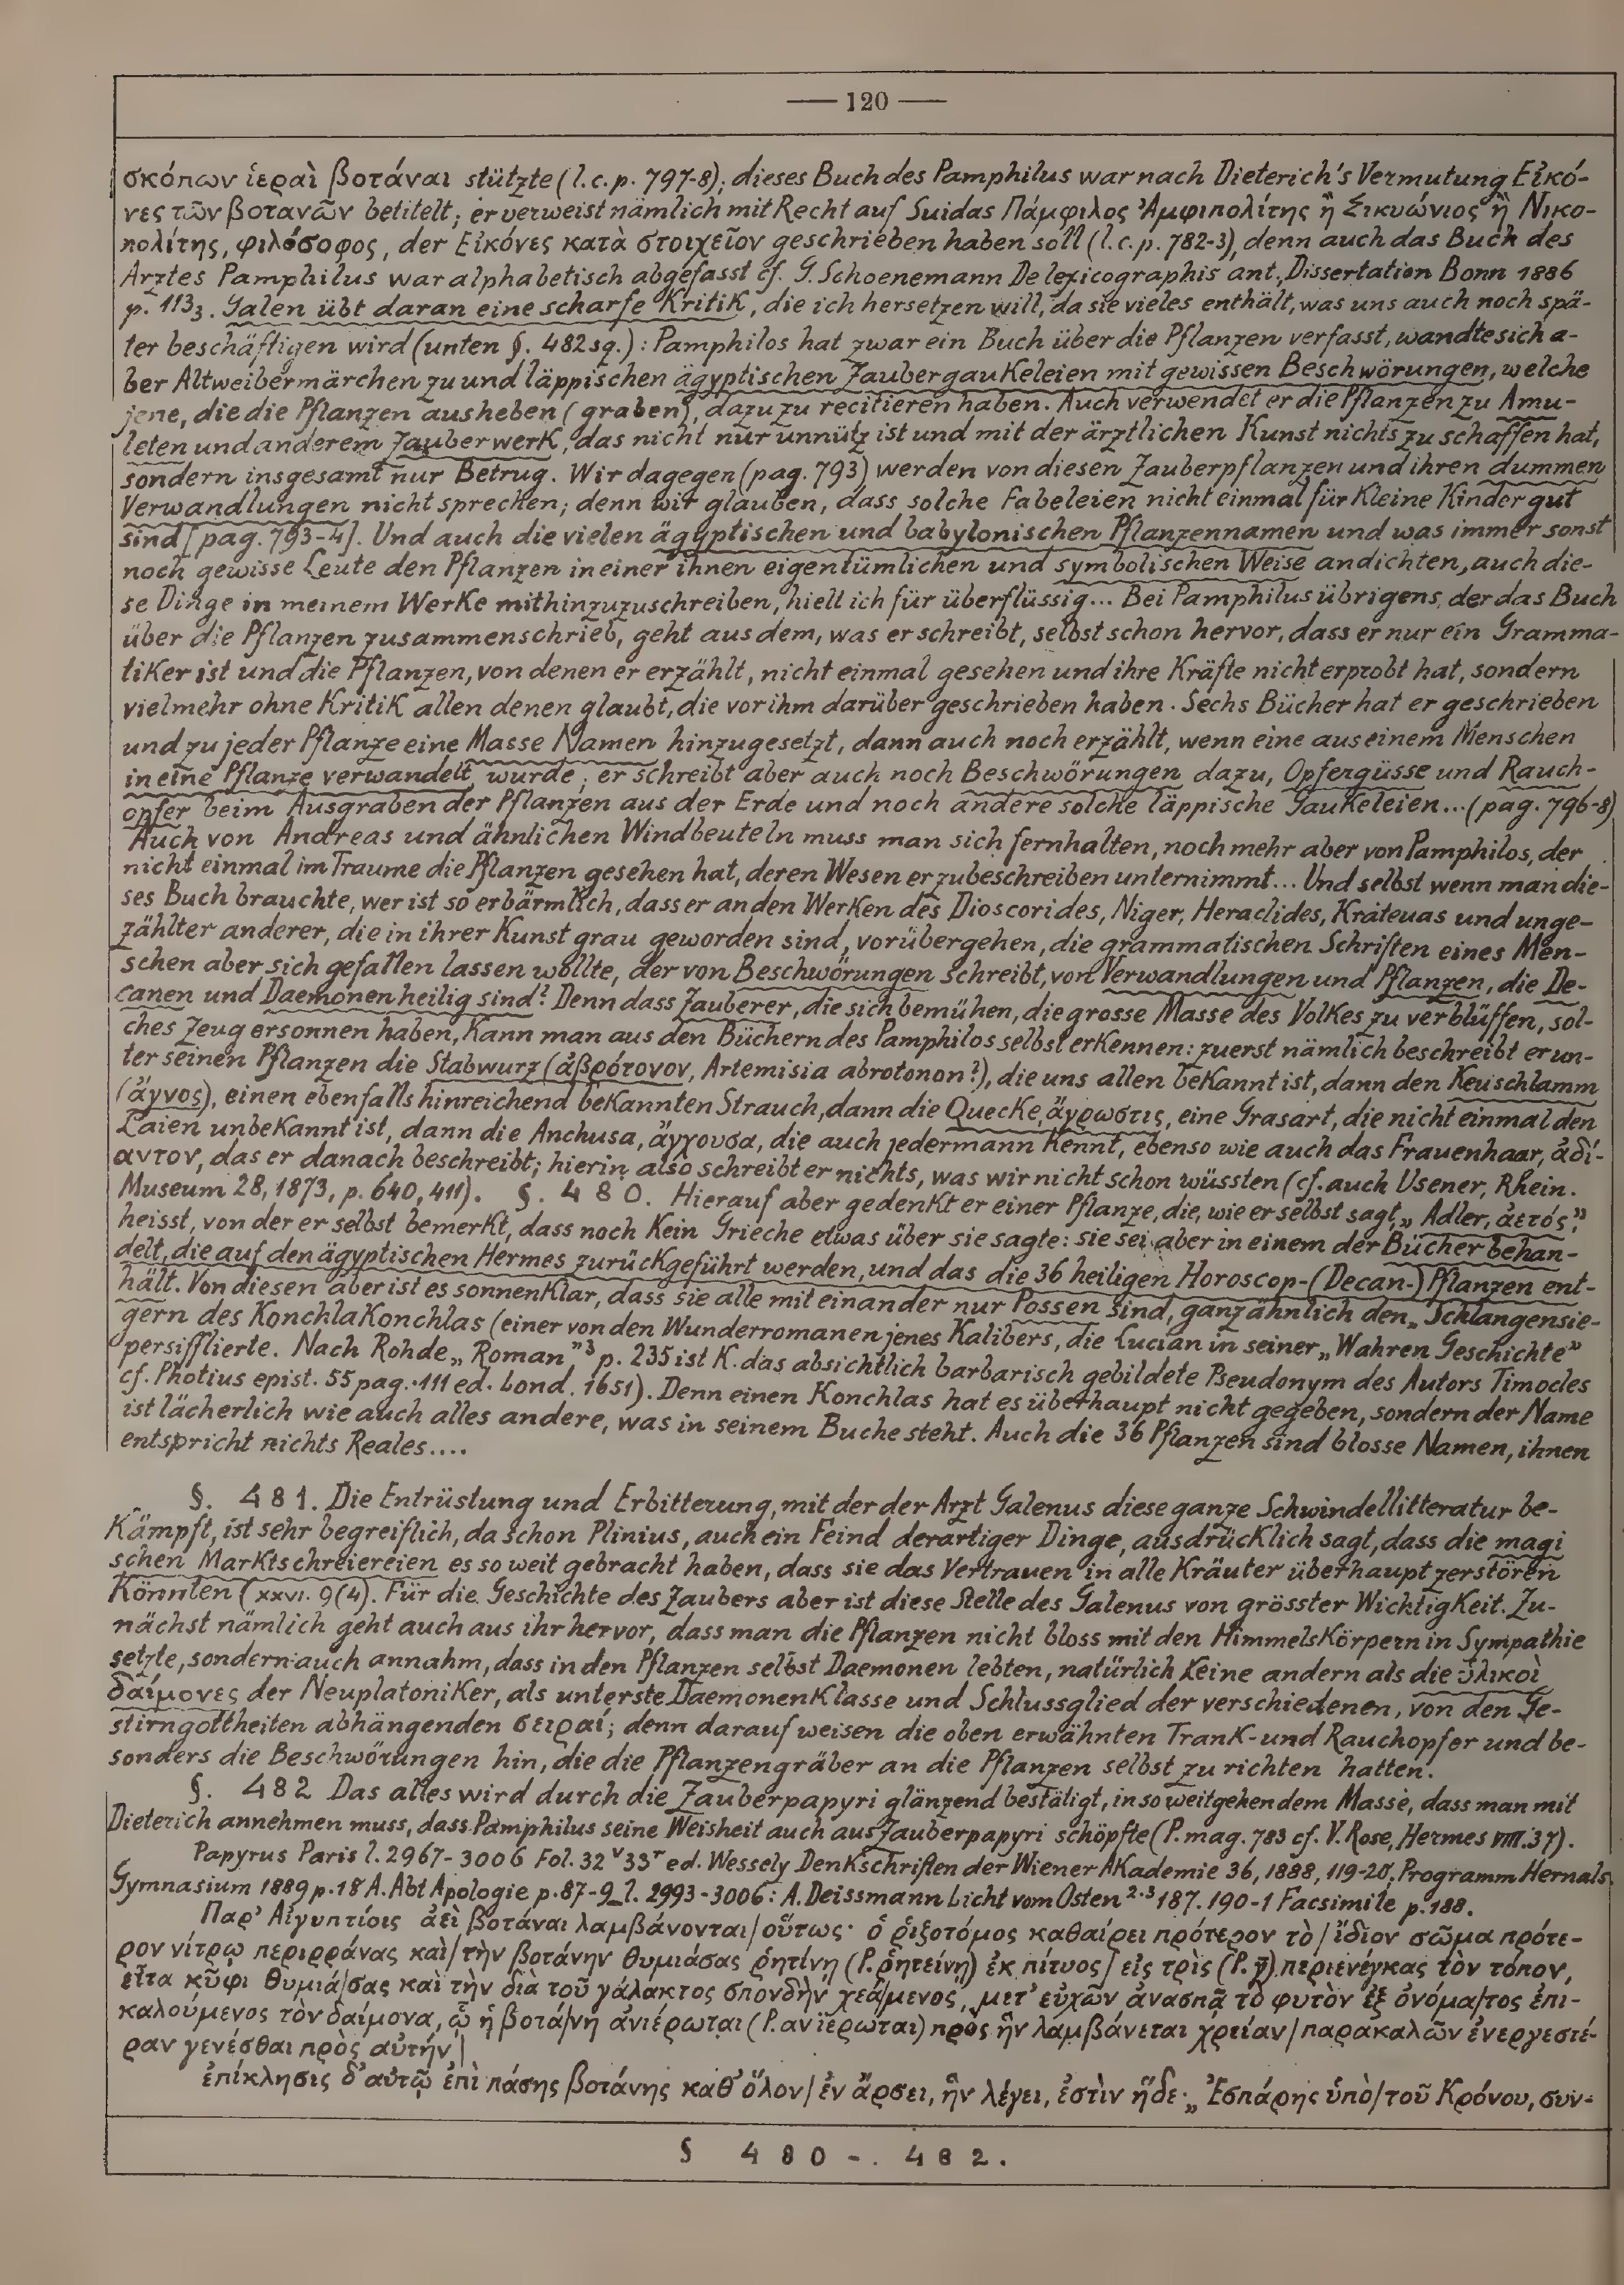 — 120 —
σκόπων ἱεραὶ βοτάναι stützte (l.c.p. 797-8); dieses Buch des Pamphilus war nach Dieterich's Vermutung Εἰκό-
νες τῶν βοτανῶν betitelt; er verweist nämlich mit Recht auf Suidas Πάμφιλος Ἀμφιπολίτης ἢ Σικυώνιος ἢ Νικο-
πολίτης, φιλόσοφος, der Εἰκόνες κατὰ στοιχεῖον geschrieben haben soll (l.c.p. 782-3), denn auch das Buch des
Arztes Pamphilus war alphabetisch abgefasst cf. G. Schoenemann De lexicographis ant., Dissertation Bonn 1886
p. 113₃. Galen übt daran eine scharfe Kritik, die ich hersetzen will, da sie vieles enthält, was uns auch noch spä-
ter beschäftigen wird (unten §. 482 sq.): Pamphilos hat zwar ein Buch über die Pflanzen verfasst, wandte sich a-
ber Altweibermärchen zu und läppischen ägyptischen Zaubergaukeleien mit gewissen Beschwörungen, welche
jene, die die Pflanzen ausheben (graben), dazu zu recitieren haben. Auch verwendet er die Pflanzen zu Amu-
leten und anderem Zauberwerk, das nicht nur unnütz ist und mit der ärztlichen Kunst nichts zu schaffen hat,
sondern insgesamt nur Betrug. Wir dagegen (pag. 793) werden von diesen Zauberpflanzen und ihren dummen
Verwandlungen nicht sprechen; denn wir glauben, dass solche Fabeleien nicht einmal für kleine Kinder gut
sind [pag. 793-4]. Und auch die vielen ägyptischen und babylonischen Pflanzennamen und was immer sonst
noch gewisse Leute den Pflanzen in einer ihnen eigentümlichen und symbolischen Weise andichten, auch die-
se Dinge in meinem Werke mithinzuzuschreiben, hielt ich für überflüssig... Bei Pamphilus übrigens, der das Buch
über die Pflanzen zusammenschrieb, geht aus dem, was er schreibt, selbst schon hervor, dass er nur ein Gramma-
tiker ist und die Pflanzen, von denen er erzählt, nicht einmal gesehen und ihre Kräfte nicht erprobt hat, sondern
vielmehr ohne Kritik allen denen glaubt, die vor ihm darüber geschrieben haben. Sechs Bücher hat er geschrieben
und zu jeder Pflanze eine Masse Namen hinzugesetzt, dann auch noch erzählt, wenn eine aus einem Menschen
in eine Pflanze verwandelt wurde; er schreibt aber auch noch Beschwörungen dazu, Opfergüsse und Rauch-
opfer beim Ausgraben der Pflanzen aus der Erde und noch andere solche läppische Gaukeleien... (pag. 796-8)
Auch von Andreas und ähnlichen Windbeuteln muss man sich fernhalten, noch mehr aber von Pamphilos, der
nicht einmal im Traume die Pflanzen gesehen hat, deren Wesen er zu beschreiben unternimmt... Und selbst wenn man die-
ses Buch brauchte, wer ist so erbärmlich, dass er an den Werken des Dioscorides, Niger, Heraclides, Krateuas und unge-
zählter anderer, die in ihrer Kunst grau geworden sind, vorübergehen, die grammatischen Schriften eines Men-
schen aber sich gefallen lassen wollte, der von Beschwörungen schreibt, von Verwandlungen und Pflanzen, die De-
canen und Daemonen heilig sind? Denn dass Zauberer, die sich bemühen, die grosse Masse des Volkes zu verblüffen, sol-
ches Zeug ersonnen haben, kann man aus den Büchern des Pamphilos selbst erkennen: zuerst nämlich beschreibt er un-
ter seinen Pflanzen die Stabwurz (ἀβρότονον, Artemisia abrotonon?), die uns allen bekannt ist, dann den Keuschlamm
(ἄγνος), einen ebenfalls hinreichend bekannten Strauch, dann die Quecke, ἄγρωστις, eine Grasart, die nicht einmal den
Laien unbekannt ist, dann die Anchusa, ἄγχουσα, die auch jedermann kennt, ebenso wie auch das Frauenhaar, ἀδί-
αντον, das er danach beschreibt; hierin also schreibt er nichts, was wir nicht schon wüssten (cf. auch Usener, Rhein.
Museum 28, 1873, p. 640, 411). §. 480. Hierauf aber gedenkt er einer Pflanze, die, wie er selbst sagt, „Adler, ἀετός,"
heisst, von der er selbst bemerkt, dass noch kein Grieche etwas über sie sagte: sie sei aber in einem der Bücher behan-
delt, die auf den ägyptischen Hermes zurückgeführt werden, und das die 36 heiligen Horoscop-(Decan-)Pflanzen ent-
hält. Von diesen aber ist es sonnenklar, dass sie alle mit einander nur Possen sind, ganz ähnlich den „Schlangensie-
gern des Konchlakonchlas (einer von den Wunderromanen jenes Kalibers, die Lucian in seiner „Wahren Geschichte"
persifflierte. Nach Rohde „Roman"³ p. 235 ist K. das absichtlich barbarisch gebildete Pseudonym des Autors Timocles
cf. Photius epist. 55 pag. 111 ed. Lond. 1651). Denn einen Konchlas hat es überhaupt nicht gegeben, sondern der Name
ist lächerlich wie auch alles andere, was in seinem Buche steht. Auch die 36 Pflanzen sind blosse Namen, ihnen
entspricht nichts Reales....
§. 481. Die Entrüstung und Erbitterung, mit der der Arzt Galenus diese ganze Schwindellitteratur be-
kämpft, ist sehr begreiflich, da schon Plinius, auch ein Feind derartiger Dinge, ausdrücklich sagt, dass die magi
schen Marktschreiereien es so weit gebracht haben, dass sie das Vertrauen in alle Kräuter überhaupt zerstören
könnten (XXVI. 9(4). Für die Geschichte des Zaubers aber ist diese Stelle des Galenus von grösster Wichtigkeit. Zu-
nächst nämlich geht auch aus ihr hervor, dass man die Pflanzen nicht bloss mit den Himmelskörpern in Sympathie
setzte, sondern auch annahm, dass in den Pflanzen selbst Daemonen lebten, natürlich keine andern als die ὑλικοὶ
δαίμονες der Neuplatoniker, als unterste Daemonenklasse und Schlussglied der verschiedenen, von den Ge-
stirngottheiten abhängenden σειραί; denn darauf weisen die oben erwähnten Trank- und Rauchopfer und be-
sonders die Beschwörungen hin, die die Pflanzengräber an die Pflanzen selbst zu richten hatten.
§. 482 Das alles wird durch die Zauberpapyri glänzend bestätigt, in so weitgehendem Masse, dass man mit
Dieterich annehmen muss, dass Pamphilus seine Weisheit auch aus Zauberpapyri schöpfte (P. mag. 783 cf. V. Rose, Hermes VIII. 37).
Papyrus Paris l. 2967-3006 Fol. 32ᵛ33ʳ ed. Wessely Denkschriften der Wiener Akademie 36, 1888, 119-20, Programm Hernals
Gymnasium 1889 p. 18 A. Abt Apologie p. 87-9 l. 2993-3006: A. Deissmann Licht vom Osten ²·³ 187. 190-1 Facsimile p. 188.
Παρ' Αἰγυπτίοις ἀεὶ βοτάναι λαμβάνονται/οὕτως· ὁ ῥιζοτόμος καθαίρει πρότερον τὸ/ἴδιον σῶμα πρότε-
ρον νίτρῳ περιρράνας καὶ/τὴν βοτάνην θυμιάσας ῥητίνῃ (P. ῥητείνῃ) ἐκ πίτυος/εἰς τρὶς (P. γ̄) περιενέγκας τὸν τόπον,
εἶτα κῦφι θυμιά/σας καὶ τὴν διὰ τοῦ γάλακτος σπονδὴν χεά/μενος, μετ' εὐχῶν ἀνασπᾷ τὸ φυτὸν ἐξ ὀνόμα/τος ἐπι-
καλούμενος τὸν δαίμονα, ᾧ ἡ βοτά/νη ἀνιέρωται (P. ανϊέρωται) πρὸς ἣν λαμβάνεται χρείαν/παρακαλῶν ἐνεργεστέ-
ραν γενέσθαι πρὸς αὐτήν|
ἐπίκλησις δ' αὐτῷ ἐπὶ πάσης βοτάνης καθ' ὅλον/ἐν ἄρσει, ἣν λέγει, ἐστὶν ἥδε· „Ἐσπάρης ὑπὸ/τοῦ Κρόνου, συν-
§ 480-. 482.